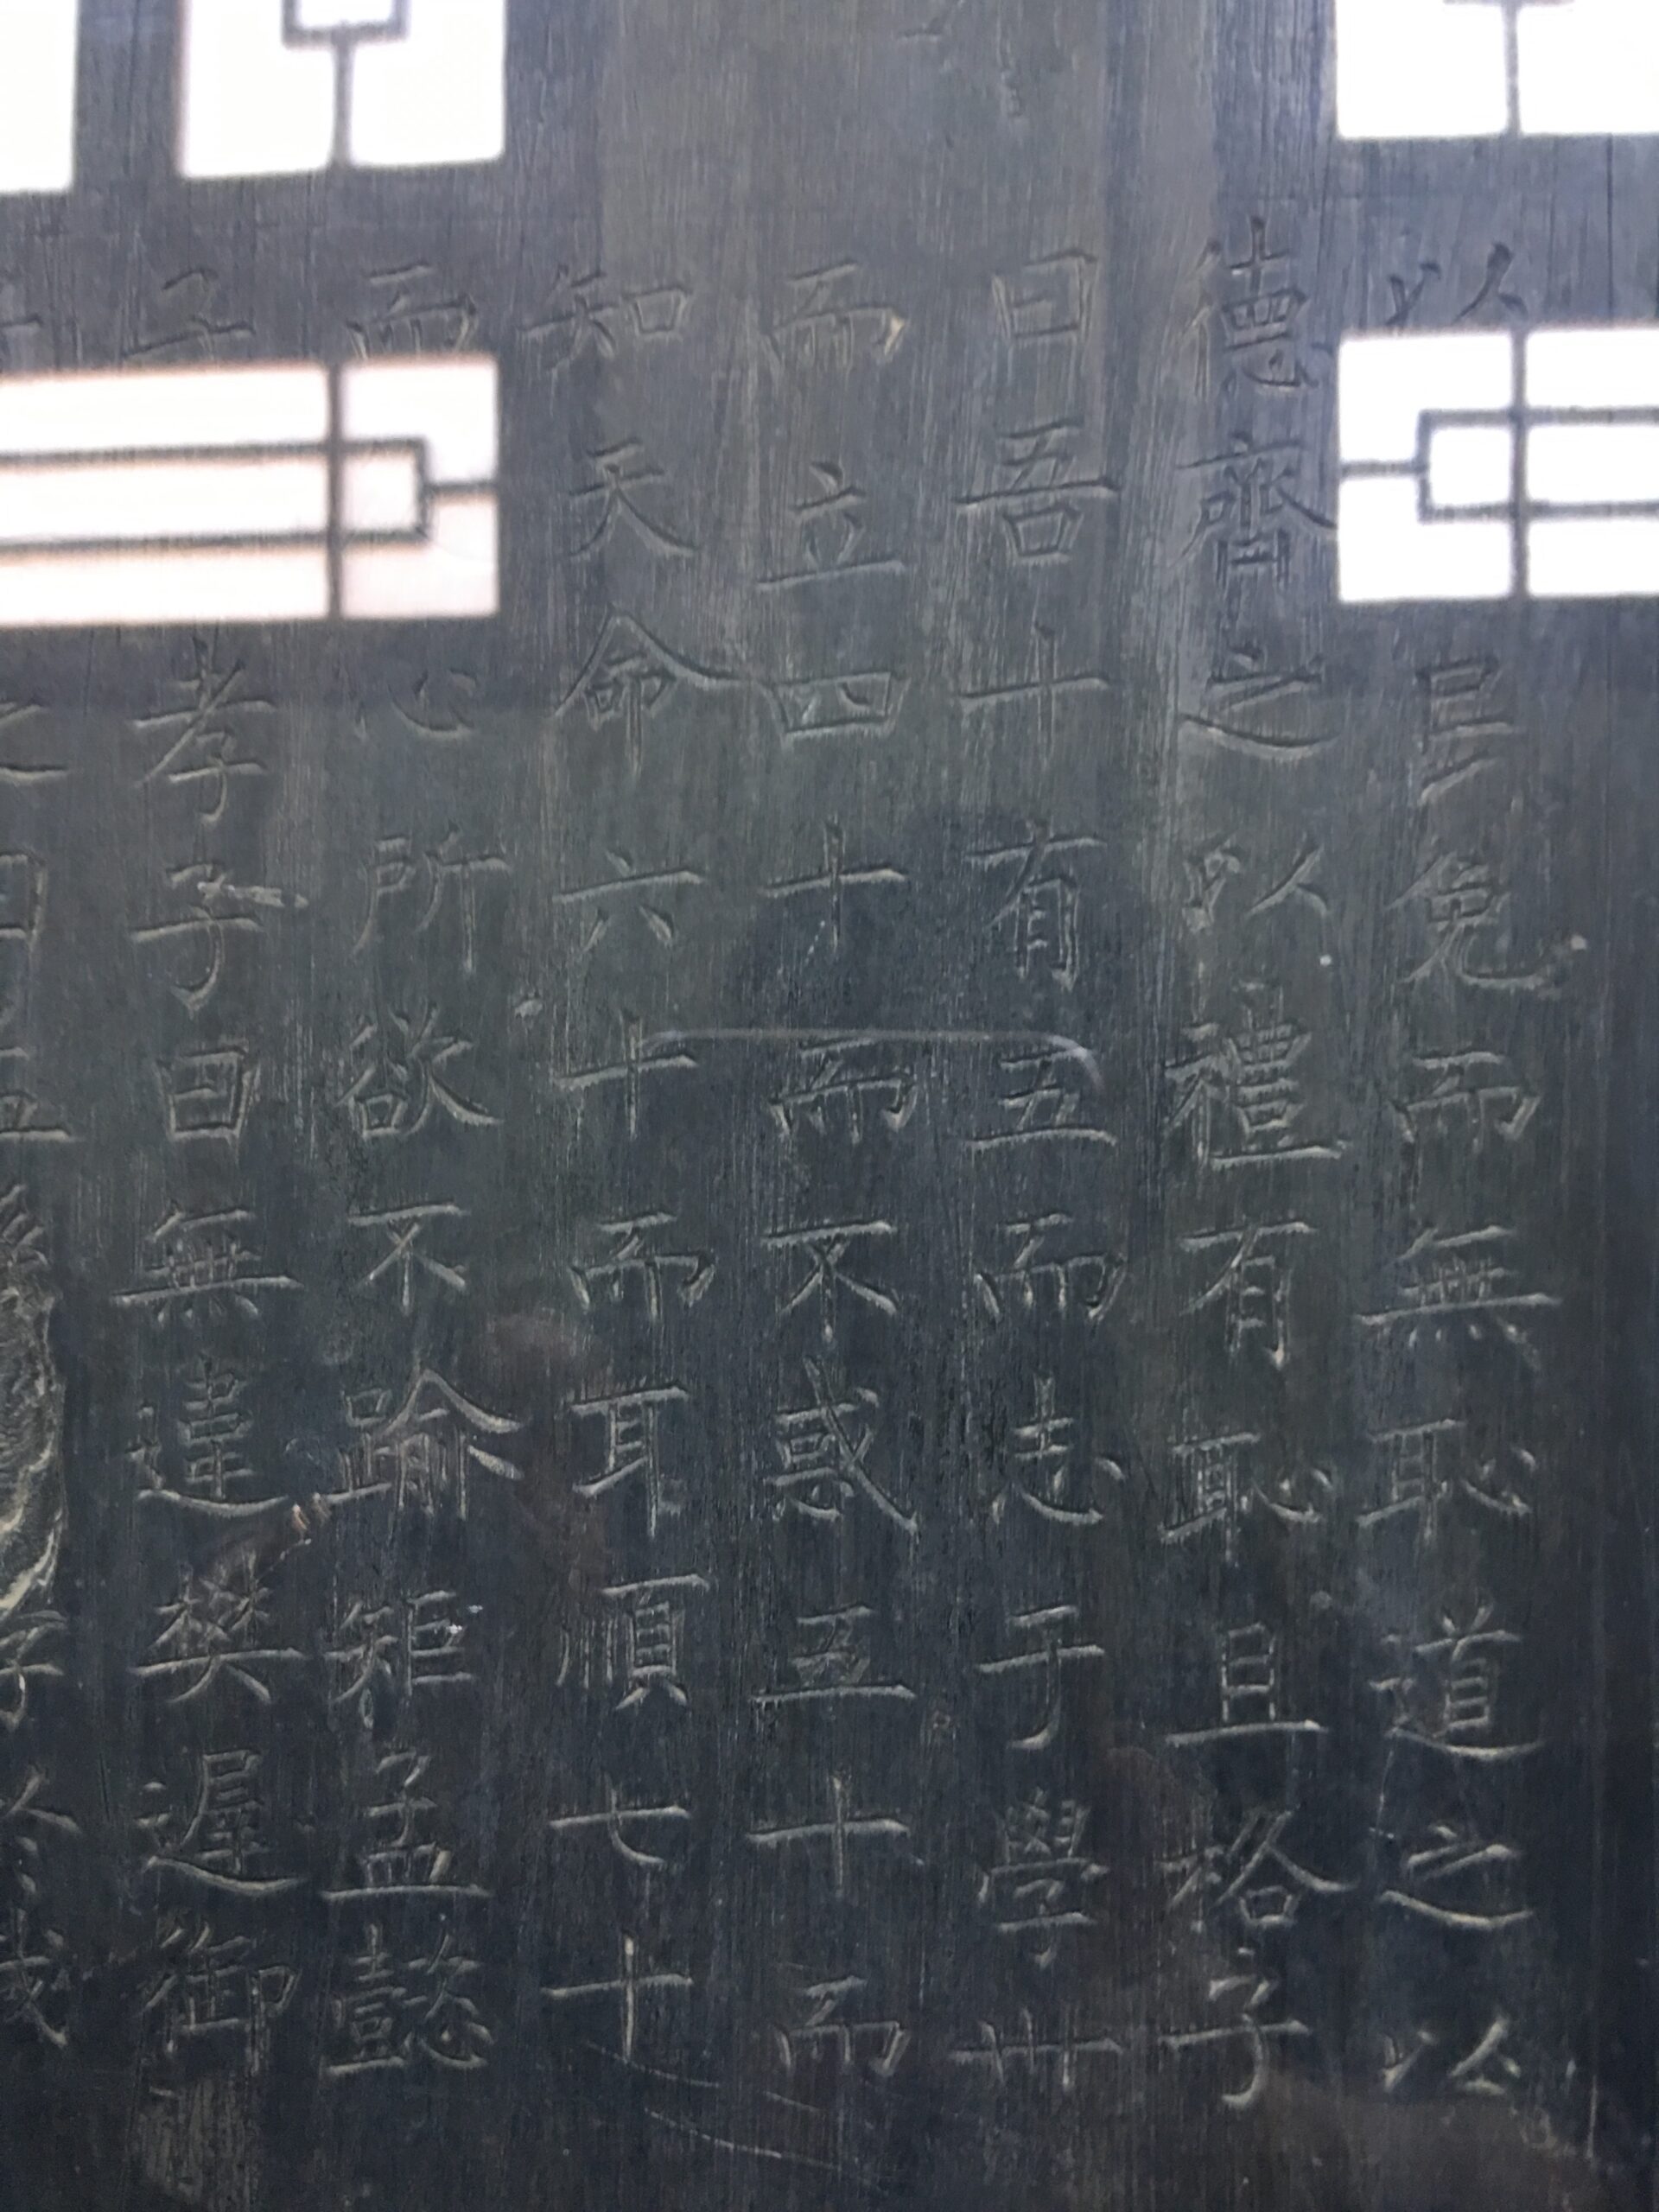 以民免而無恥道之以
德齊之以禮有恥且格子
曰吾十有五而志于學卅
而立四十而不惑五十而
知天命六十而耳順七十
而心所欲不踰矩孟懿
子孝子曰無違樊遲御
之曰孟孝於我